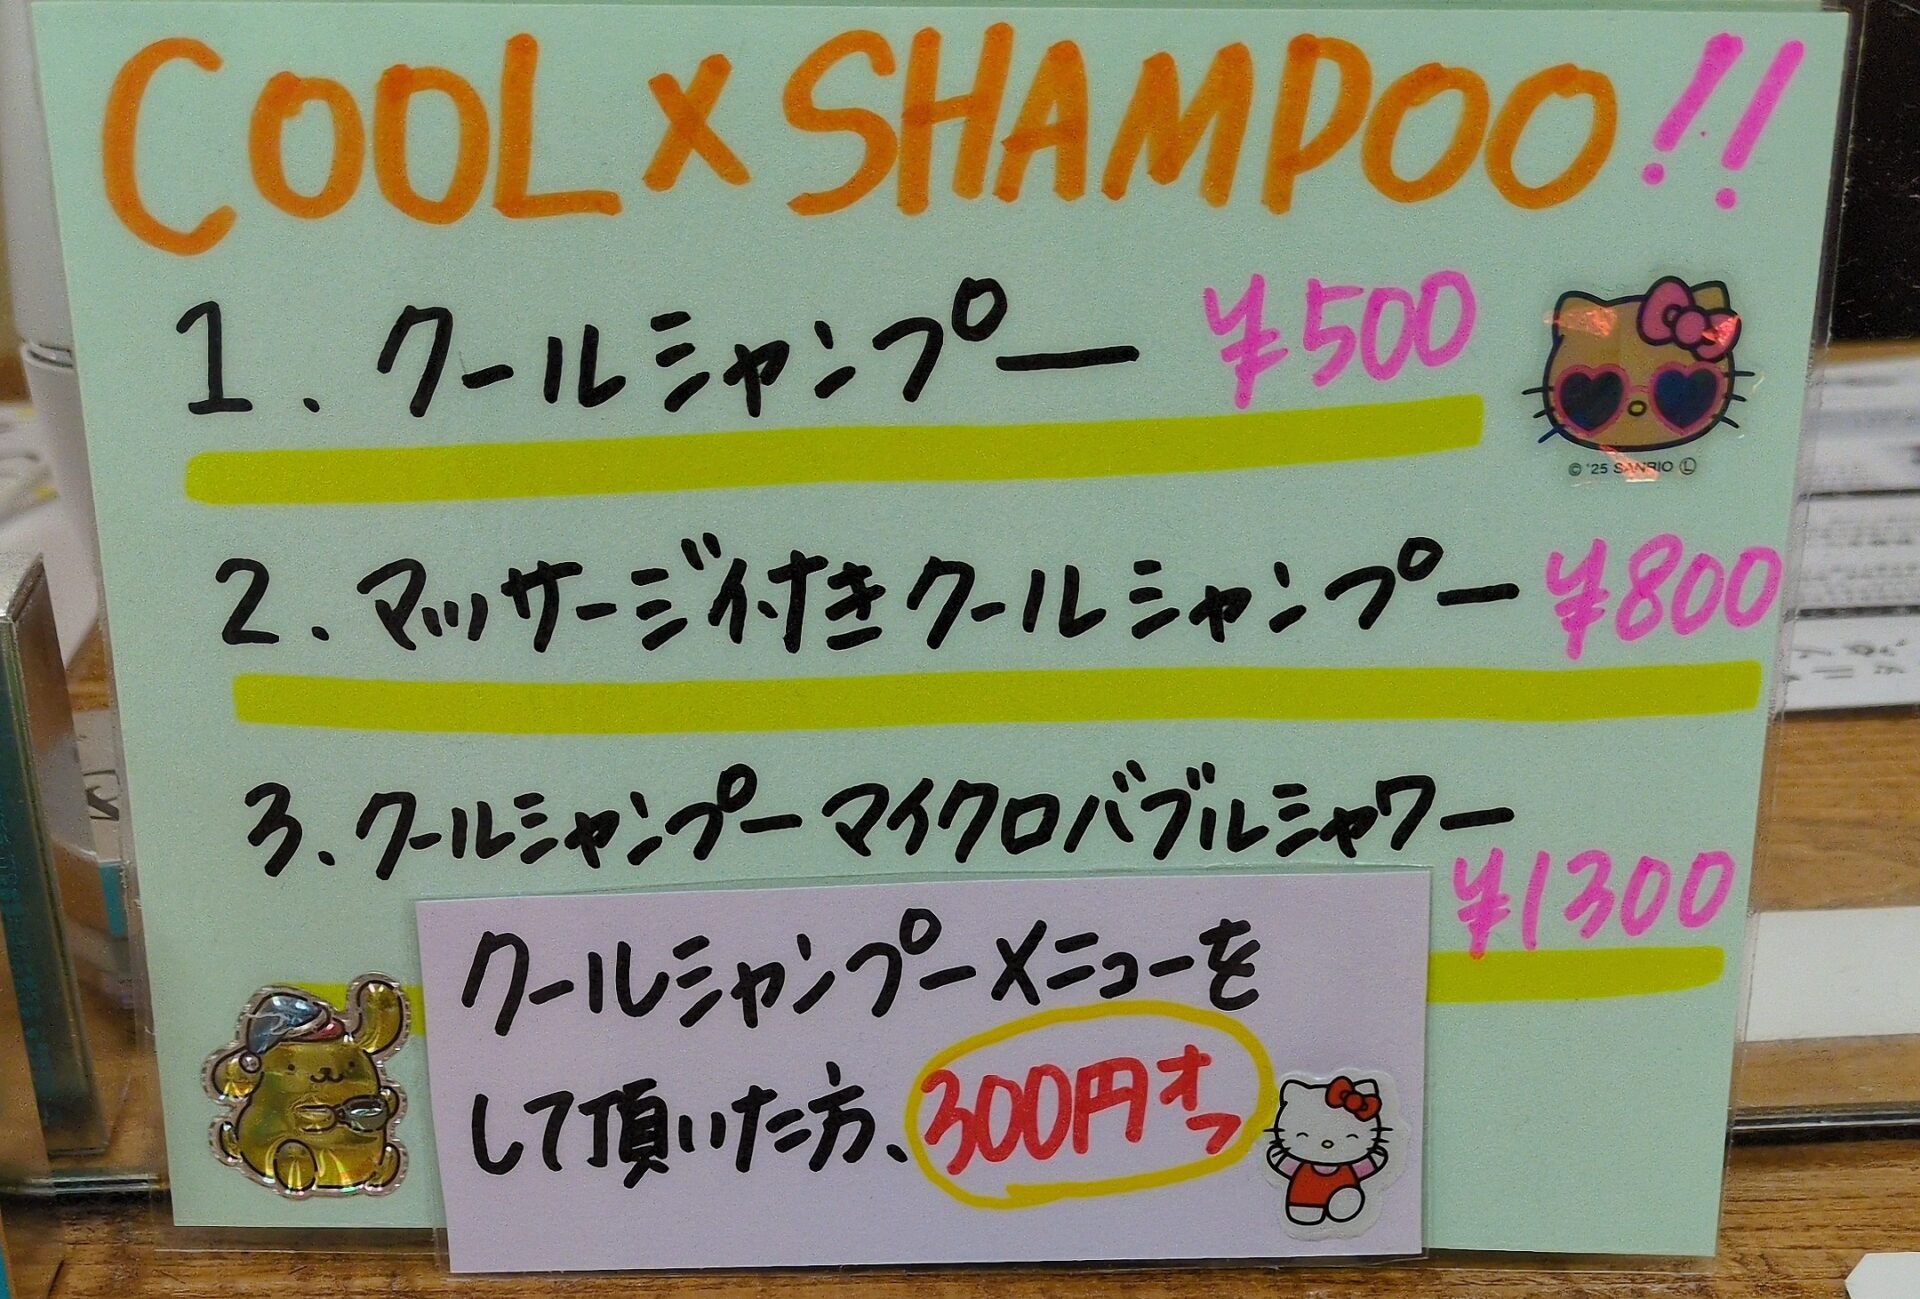 COOL × SHAMPOO!!
1. クールシャンプー ¥500
© '25 SANRIO Ⓛ
2. マッサージ付きクールシャンプー ¥800
3. クールシャンプーマイクロバブルシャワー
¥1300
クールシャンプーメニューを
して頂いた方、300円オフ